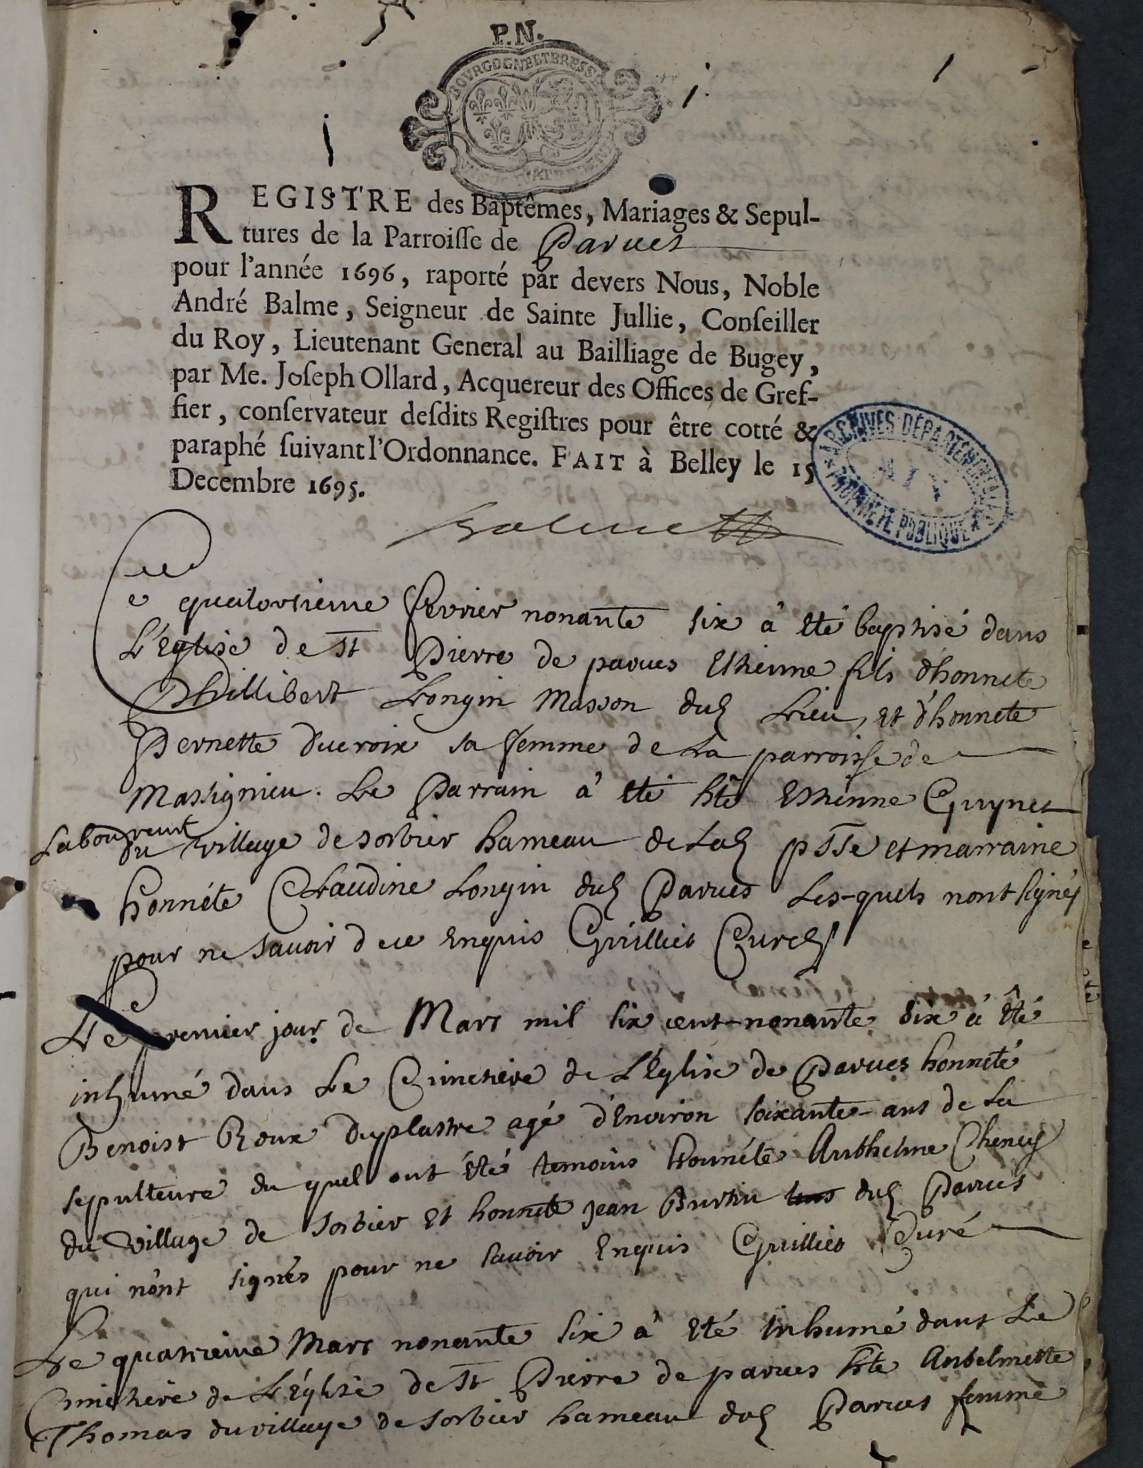 P.N.
BOURGOGNE ET BRESSE
1
REGISTRE des Baptêmes, Mariages & Sepul-
tures de la Parroisse de Parues
pour l'année 1696, raporté par devers Nous, Noble
André Balme, Seigneur de Sainte Jullie, Conseiller
du Roy, Lieutenant General au Bailliage de Bugey,
par Me. Joseph Ollard, Acquereur des Offices de Gref-
fier, conservateur desdits Registres pour être cotté &
paraphé suivant l'Ordonnance. FAIT à Belley le 15
Decembre 1695.
ARCHIVES DÉPARTEMENTALES
AIN
PROPRIÉTÉ PUBLIQUE
Balme
Ce quatorsieme fevrier nonante six à été baptisé dans
L'Eglise de St Pierre de parues Estienne fils d'honnete
Phillibert Longin Masson dud Lieu, et d'honnete
Pernette ducroix sa femme de La parroisse de
Massignieu. Le Parrain à eté hte Estienne Guynet
Laboureur du village de sorbier hameau de Lad psse et marraine
honnéte Claudine Longin dud Parues Les-quels nont signés
pour ne savoir de ce Enquis Grilliet Curé
Le premier jour de Mars mil six cent-nonante six à êté
inhumé dans Le Cimetiere de L'Eglise de Parues honneté
Benoist Roux duplastre agé d'Environ soixante-ans de La
sepulteure du quel ont été temoins honnéte Anthelme Chency
du village de sorbier et honnete jean Burtin dud Parues
qui n'ont signés pour ne savoir Enquis Grilliet Curé
Le quatrieme Mars nonante six à eté inhumé dans Le
Cimetiere de L'Eglise de St Pierre de parues hte Antelmette
Thomas du village de sorbier hameau dud Parues femme